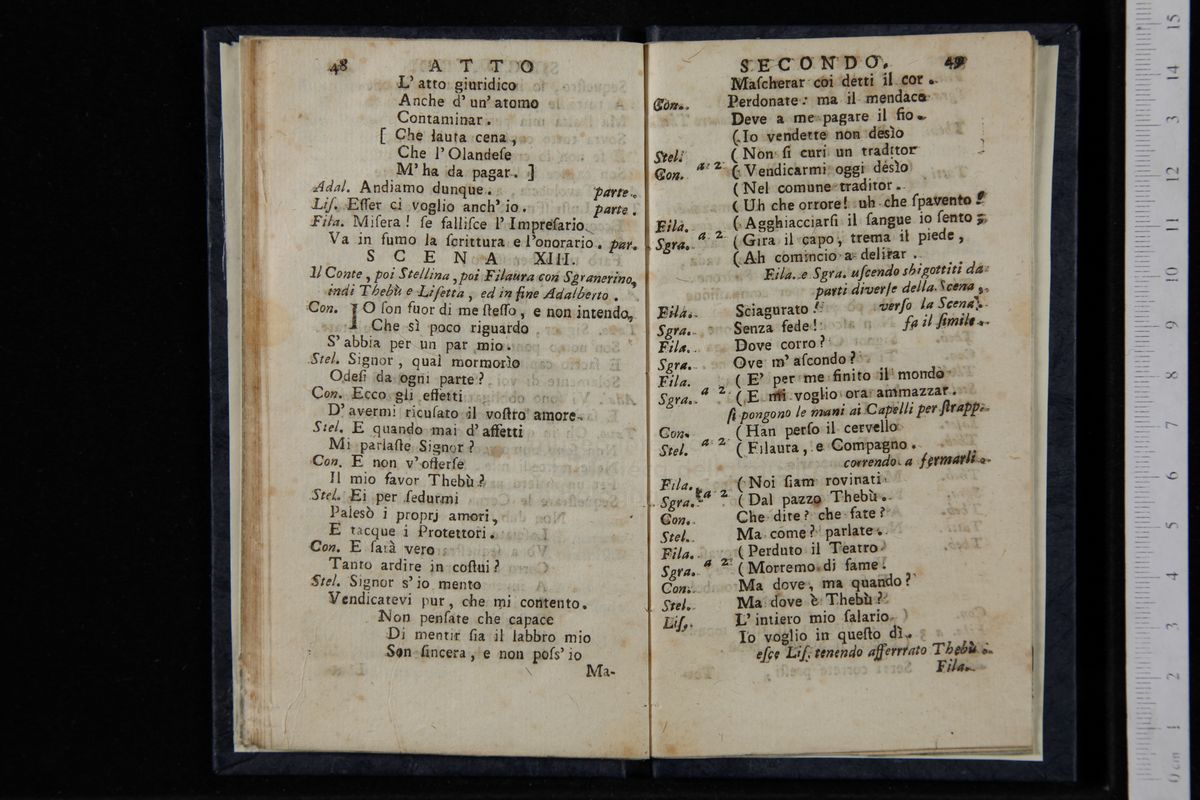 48 ATTO
L' atto giuridico
Anche d' un' atomo
Contaminar.
[ Che lauta cena,
Che l' Olandeſe
M' ha da pagar. ]
Adal. Andiamo dunque. parte.
Liſ. Eſſer ci voglio anch' io. parte.
Fila. Miſera! ſe falliſce l' Impreſario
Va in fumo la ſcrittura e l'onorario. par.
SCENA XIII.
Il Conte, poi Stellina, poi Filaura con Sgranerino,
indi Thebù e Liſetta, ed in fine Adalberto.
Con. IO ſon fuor di me ſteſſo, e non intendo,
Che sì poco riguardo
S' abbia per un par mio.
Stel. Signor, qual mormorìo
Odeſi da ogni parte?
Con. Ecco gli effetti
D' avermi ricuſato il voſtro amore.
Stel. E quando mai d' affetti
Mi parlaſte Signor?
Con. E non v' offerſe
Il mio favor Thebù?
Stel. Ei per ſedurmi
Paleſò i proprj amori,
E tacque i Protettori.
Con. E ſarà vero
Tanto ardire in coſtui?
Stel. Signor s' io mento
Vendicatevi pur, che mi contento.
Non penſate che capace
Di mentir ſia il labbro mio
Son ſincera, e non poſs' io
Ma-
SECONDO. 49
Maſcherar coi detti il cor.
Con. Perdonate: ma il mendace
Deve a me pagare il fio.
(Io vendette non desìo
Stel. (Non ſi curi un traditor
Con. a 2 (Vendicarmi oggi desìo
(Nel comune traditor.
(Uh che orrore! uh che ſpavento!
Fila. (Agghiacciarſi il ſangue io ſento;
Sgra. a 2 (Gira il capo, trema il piede,
(Ah comincio a delirar.
Fila. e Sgra. uſcendo sbigottiti da
parti diverſe della Scena,
Fila. Sciagurato! verſo la Scena.
Sgra. Senza fede! fa il ſimile.
Fila. Dove corro?
Sgra. Ove m' aſcondo?
Fila. (E' per me finito il mondo
Sgra. a 2 (E mi voglio ora ammazzar.
ſi pongono le mani ai Capelli per ſtrapp.
Con. (Han perſo il cervello
Stel. a 2 (Filaura, e Compagno.
correndo a fermarli.
Fila. (Noi ſiam rovinati
Sgra. a 2 (Dal pazzo Thebù.
Con. Che dite? che fate?
Stel. Ma come? parlate.
Fila. (Perduto il Teatro
Sgra. a 2 (Morremo di fame.
Con. Ma dove, ma quando?
Stel. Ma dove è Thebù?
Liſ. L' intiero mio ſalario
Io voglio in queſto dì.
eſce Liſ. tenendo afferrrato Thebù.
Fila.
0 cm 1 2 3 4 5 6 7 8 9 10 11 12 13 14 15